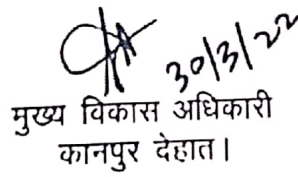 30/3/22
मुख्य विकास अधिकारी
कानपुर देहात।